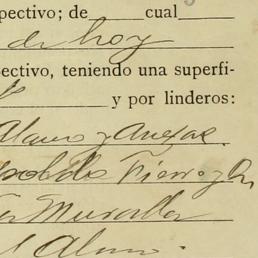 pectivo; de ______ cual ______
de hoy
ectivo, teniendo una superfi-
______ y por linderos:
Alamo y Anexas.
Fierro y
Muralla
Alamo.